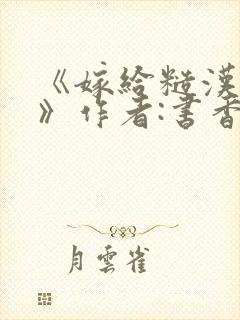 《嫁给糙漢
》作者:書香
月雲雀